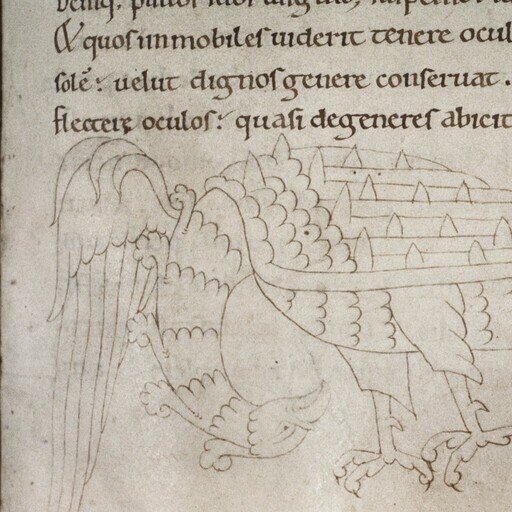 suos
& quos inmobiles uiderit tenere ocul
solē: uelut dignos genere conseruat.
flectere oculos: quasi degeneres abicit